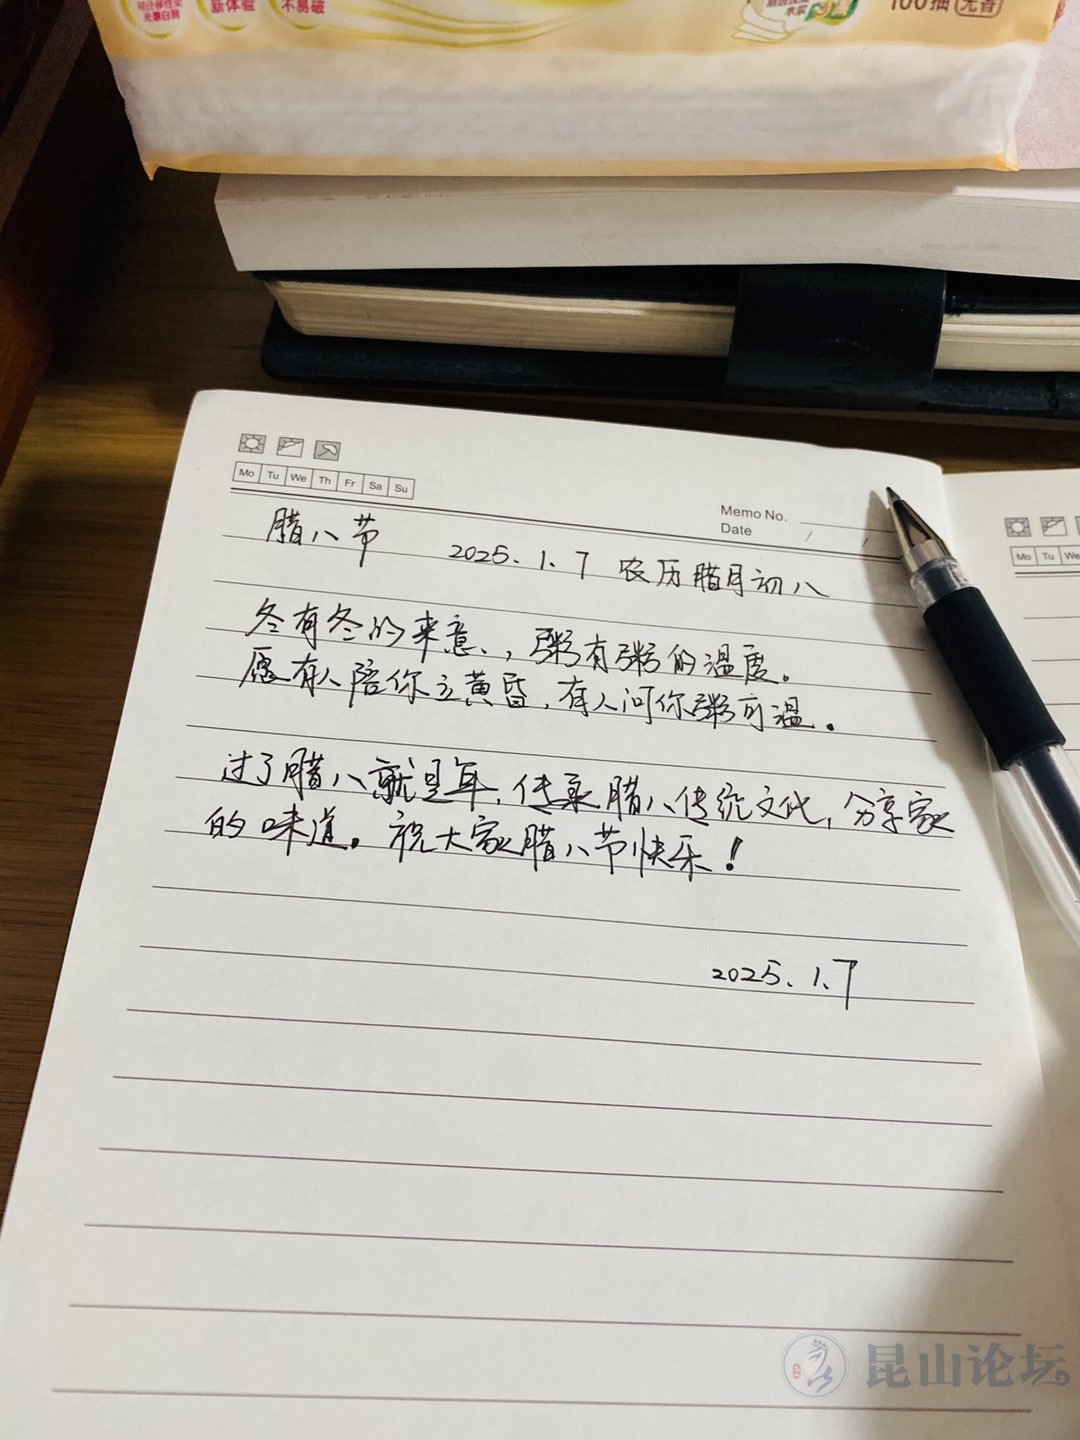 新体验
不易破
100抽 无香
Mo Tu We Th Fr Sa Su
Memo No.
Date / /
腊八节 2025.1.7 农历腊月初八
冬有冬的来意，粥有粥的温度。
愿有人陪你立黄昏，有人问你粥可温。
过了腊八就是年，传承腊八传统文化，分享家
的味道。祝大家腊八节快乐！
2025.1.7
Mo Tu We
昆山论坛